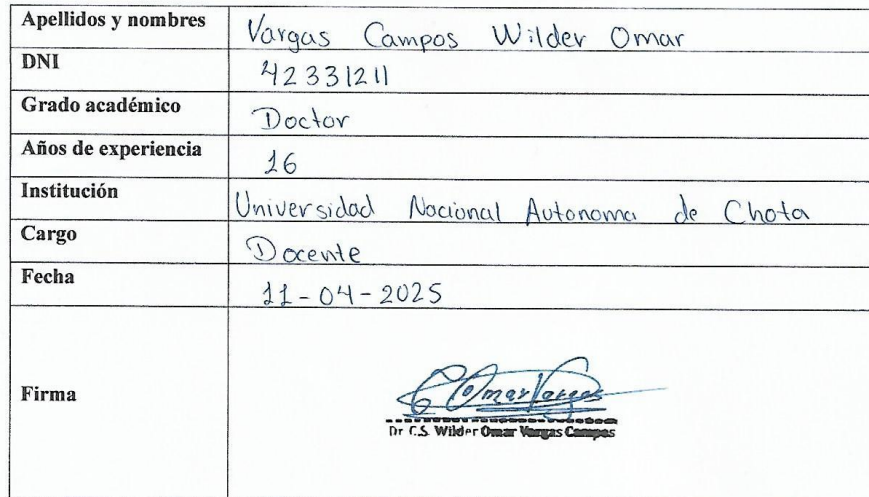 Apellidos y nombres Vargas Campos Wilder Omar
DNI 42331211
Grado académico Doctor
Años de experiencia 16
Institución Universidad Nacional Autonoma de Chota
Cargo Docente
Fecha 11-04-2025
Firma Omar Vargas
Dr. C.S. Wilder Omar Vargas Campos